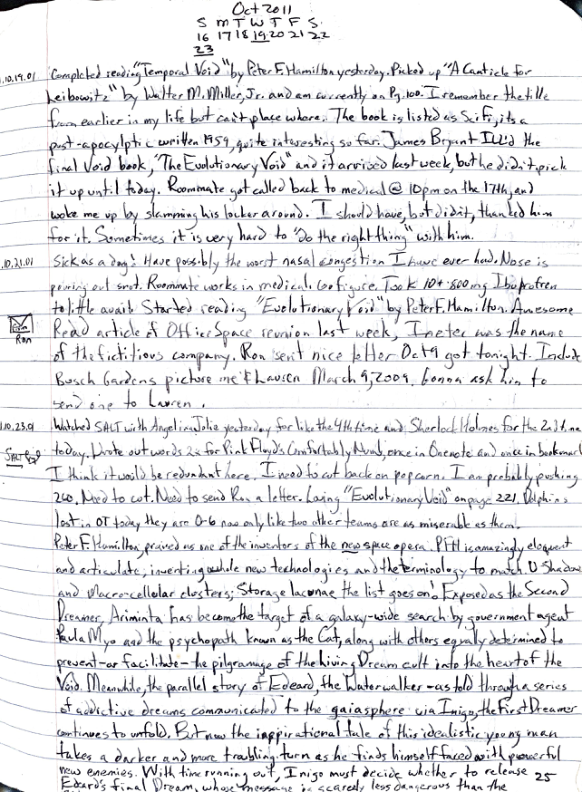 Oct 2011
S M T W T F S
16 17 18 19 20 21 22
23
1.10.19.01 Completed reading "Temporal Void" by Peter F. Hamilton yesterday. Picked up "A Canticle for
Leibowitz" by Walter M. Miller, Jr. and am currently on Pg. 100. I remember the title
from earlier in my life but can't place where. The book is listed as SciFi, its a
post-apocylptic written 1959, quite interesting so far. James Bryant Ill'd the
final Void book, "The Evolutionary Void" and it arrived last week, but he didn't pick
it up until today. Roommate got called back to medical @ 10pm on the 17th, and
woke me up by slamming his locker around. I should have, but didn't, thanked him
for it. Sometimes it is very hard to "do the right thing" with him.
.10.21.01 Sick as a dog! Have possibly the worst nasal congestion I have ever had. Nose is
pouring out snot. Roommate works in medical. Go figure. Took 10+ 800mg Ibuprofren
to little avail. Started reading "Evolutionary Void" by Peter F. Hamilton. Awesome
Read article of Office Space reunion last week, Initech was the name
Ron
of the fictitious company. Ron sent nice letter Oct 9 got tonight. Include
Busch Gardens picture me & Lauren March 9, 2009. Gonna ask him to
send one to Lauren.
1.10.23.01 Watched SALT with Angelina Jolie yesterday for like the 4th time and Sherlock Holmes for the 2nd time
SALT
today. Wrote out words 2x for Pink Floyd's Comfortably Numb, once in Onenote and once in bookmark
I think it would be redundant here. I need to cut back on popcorn. I am probably pushing
260. Need to cut. Need to send Ron a letter. Loving "Evolutionary Void" on page 221. Dolphins
lost in OT today they are 0-6 now only like two other teams are as miserable as them.
Peter F. Hamilton, praised as one of the inventors of the new space opera. PFH is amazingly eloquent
and articulate; inventing whole new technologies and the terminology to match. U Shadow
and Macro-cellular clusters; Storage lacunae, the list goes on. Exposed as the Second
Dreamer, Ariminta has become the target of a galaxy-wide search by government agent
Paula Myo and the psychopath known as the Cat, along with others equally determined to
prevent-or facilitate-the pilgramage of the Living Dream cult into the heart of the
Void. Meanwhile, the parallel story of Edeard, the Waterwalker-as told through a series
of addictive dreams communicated to the gaiasphere via Inigo, the First Dreamer
continues to unfold. But now the inspirational tale of this idealistic young man
takes a darker and more troubling turn as he finds himself faced with powerful
new enemies. With time running out, Inigo must decide whether to release 25
Edeard's final Dream, whose message is scarcely less dangerous than the